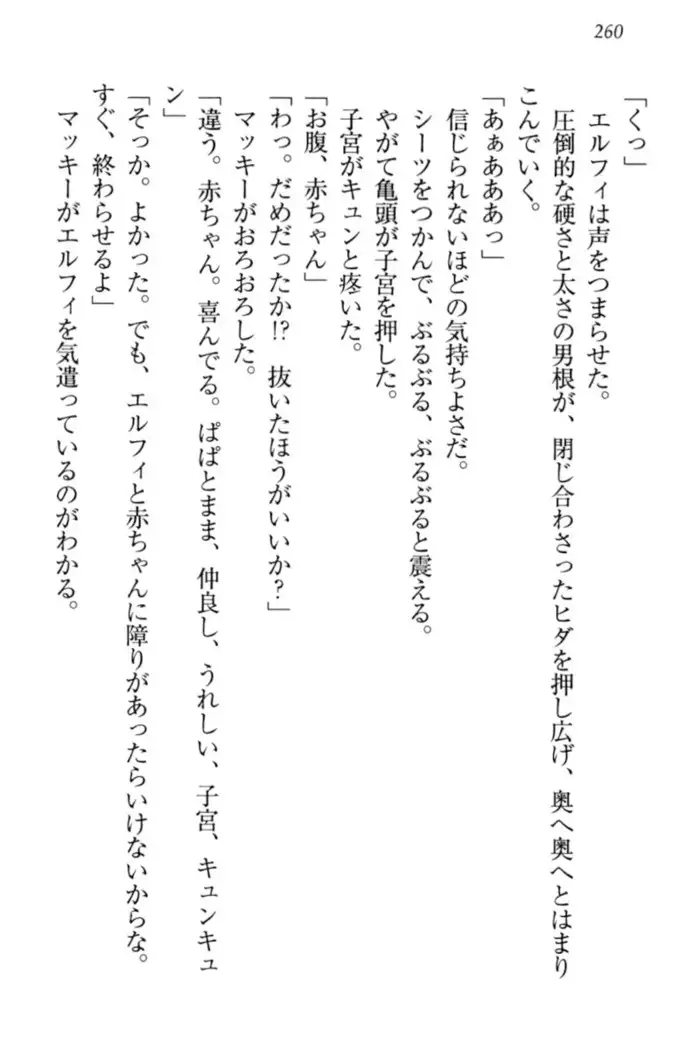 260
「くっ」
エルフィは声をつまらせた。
圧倒的な硬さと太さの男根が、閉じ合わさったヒダを押し広げ、奥へ奥へとはまり
こんでいく。
「あぁあああっ」
信じられないほどの気持ちよさだ。
シーツをつかんで、ぶるぶる、ぶるぶると震える。
やがて亀頭が子宮を押した。
子宮がキュンと疼いた。
「お腹、赤ちゃん」
「わっ。だめだったか!?　抜いたほうがいいか?」
マッキーがおろおろした。
「違う。赤ちゃん。喜んでる。ぱぱとまま、仲良し、うれしい、子宮、キュンキュ
ン」
「そっか。よかった。でも、エルフィと赤ちゃんに障りがあったらいけないからな。
すぐ、終わらせるよ」
マッキーがエルフィを気遣っているのがわかる。